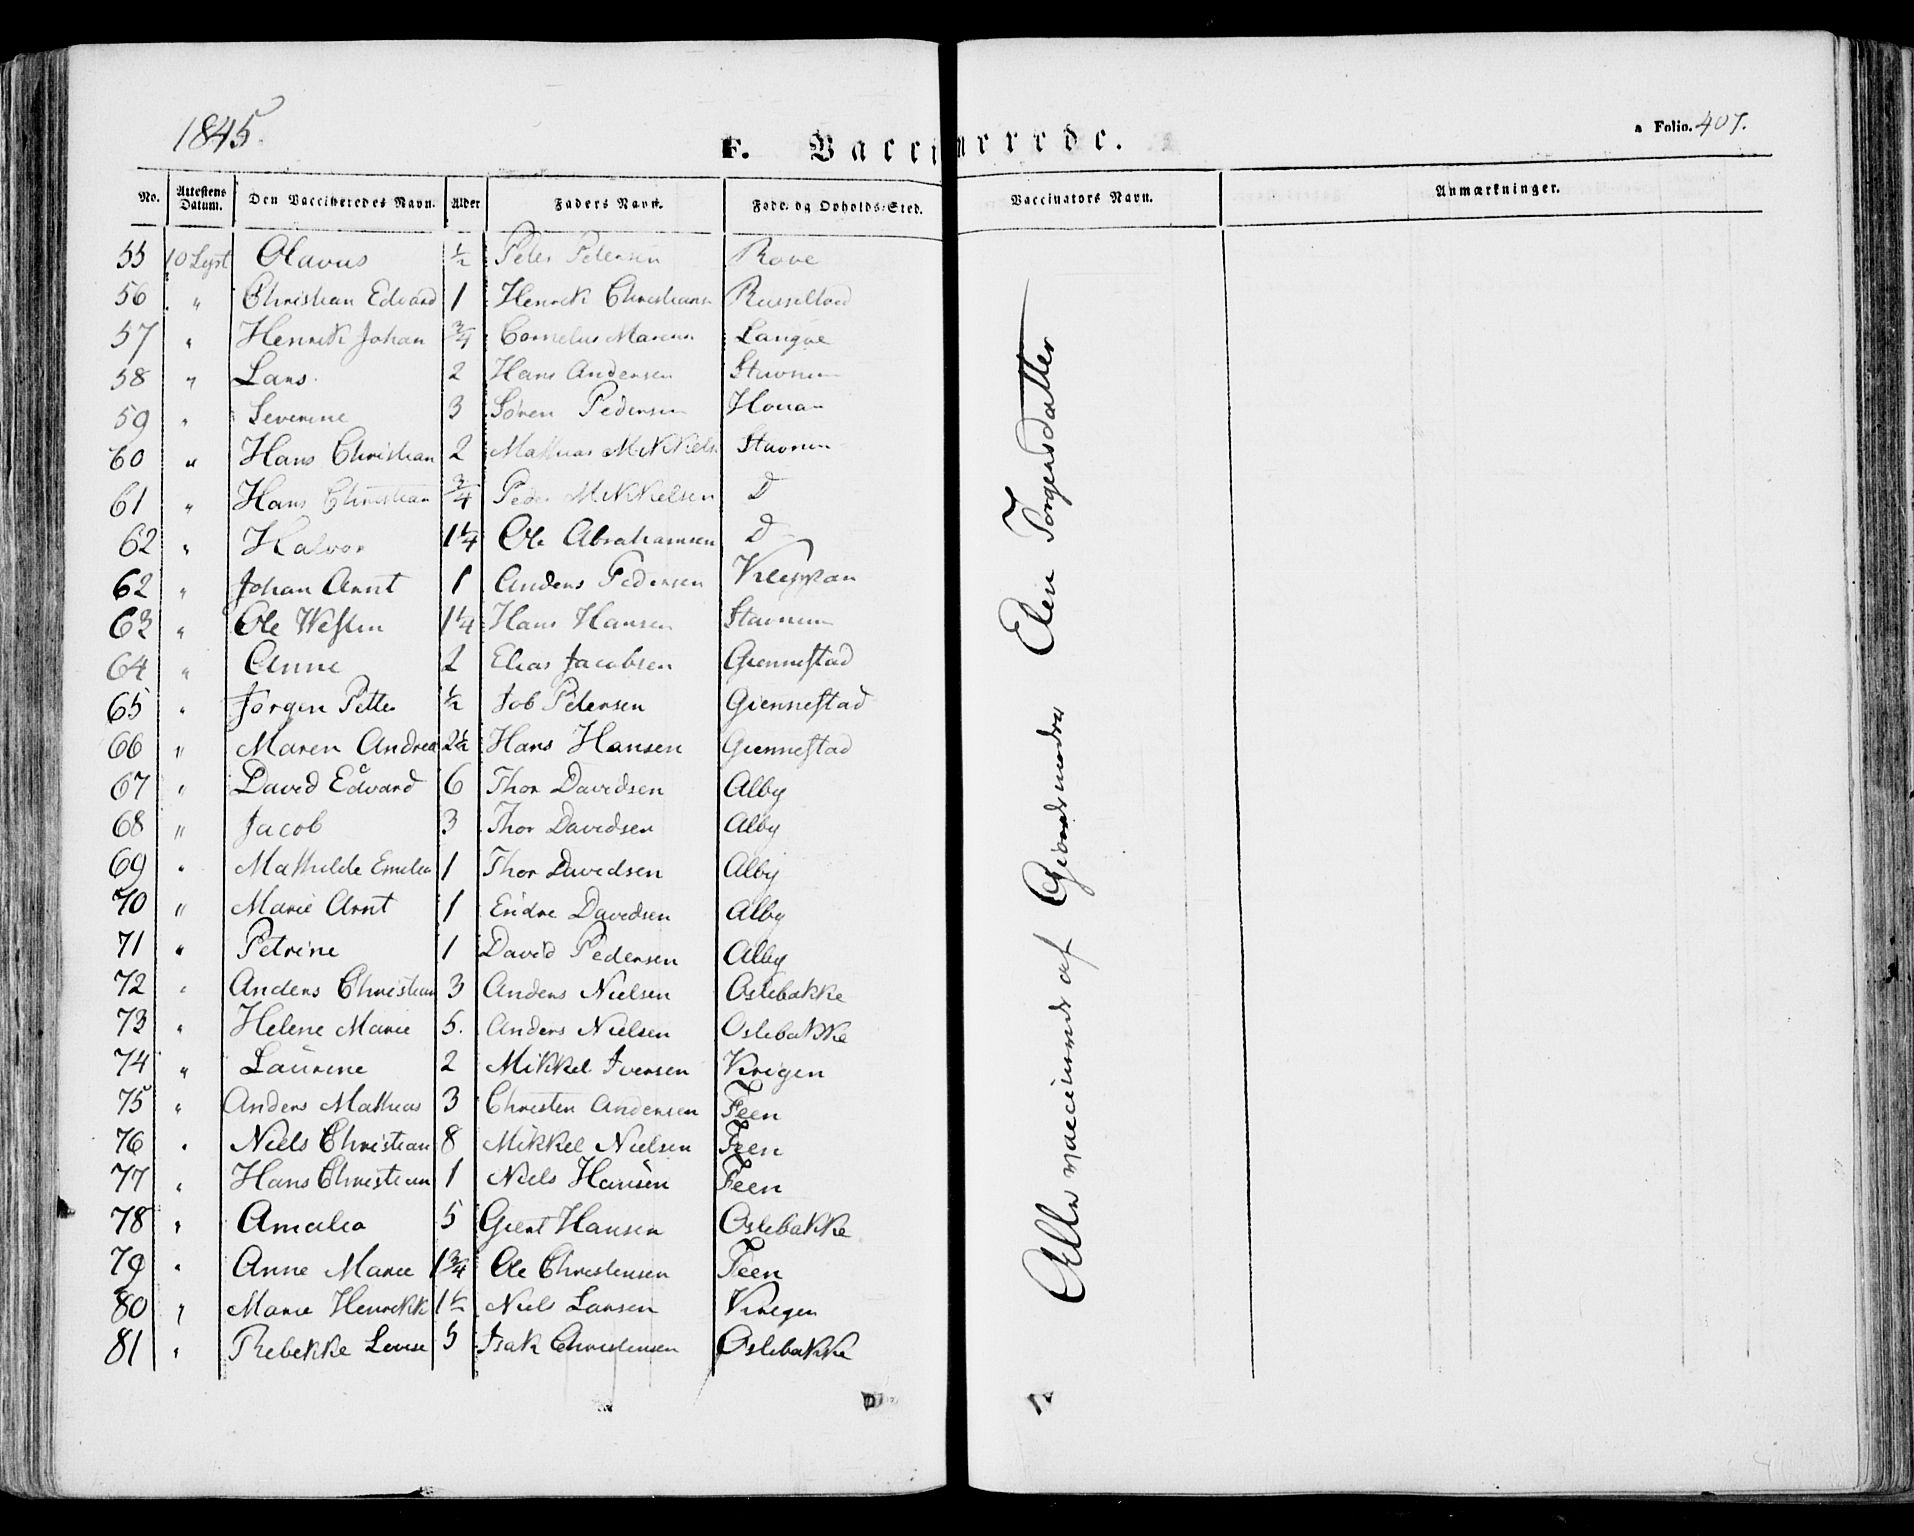 1845.
F. Vaccinerede.
a Folio. 407.
No. Attestens Datum. Den Vaccineredes Navn. Alder Faders Navn. Føde- og Opholds-Sted. Vaccinators Navn. Anmærkninger.
55 10 Sept Olavus ½ Peter Petersen Rove
56 " Christian Edvard 1 Henrik Christians
57 " Henrik Johan ¾ Cornelius Langøe
58 " Lars 2 Hans Andersen Stavnum
59 " Severine 3 Søren Pedersen Houan
60 " Hans Christian 2 Mathias Mikkels Stavnum
61 " Hans Christian ¾ Peder Mikkelsen D
62 " Halvor 1¼ Ole Abrahamsen D
62 " Johan Arnt 1 Anders Pedersen Kleppan
63 " Ole Westin 1¼ Hans Hansen Stavnum
64 " Anne 2 Elias Jacobsen Giennestad
65 " Jørgen Petter ½ Job Petersen Giennestad
66 " Maren Andrea 2½ Hans Hansen Giennestad
67 " David Edvard 6 Thor Davidsen Alby
68 " Jacob 3 Thor Davidsen Alby
69 " Mathilde Emelia 1 Thor Davidsen Alby
70 " Marie Arnt 1 Endre Davidsen Alby
71 " Petrine 1 David Pedersen Alby
72 " Anders Christian 3 Anders Nielsen Oslebakke
73 " Helene Marie 5. Anders Nielsen Oslebakke
74 " Laurine 2 Mikkel Iversen Krigen
75 " Anders Mathias 3 Christen Andersen Feen
76 " Niels Christian 8 Mikkel Nielsen Feen
77 " Hans Christian 1 Niels Hansen Feen
78 " Amalia 5 Giert Hansen Oslebakke
79 " Anne Marie 1¾ Ole Christensen Feen
80 " Marie Henrikk 1½ Niels Larsen Krigen
81 " Rebekke Lovise 5 Isak Christensen Oslebakke
Alle vaccinerede af Giordemoder Elen Torgersdatter